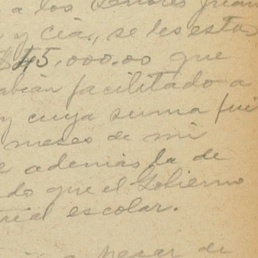 a los Señores Juan
y Cía., se les esta
$45,000.00 que
habían facilitado a
y cuya suma fué
meses de mi
además, la de
do que el Gobierno
rial escolar.
a pesar de